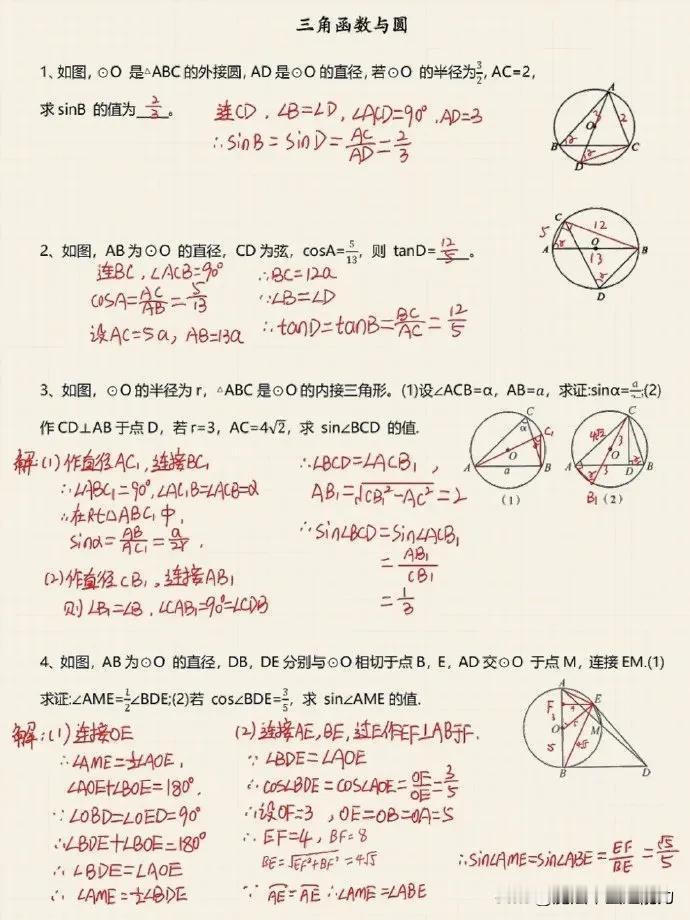 三角函数与圆
1、如图，⊙O 是△ABC的外接圆，AD是⊙O的直径，若⊙O 的半径为3/2，AC=2，
求sinB 的值为 2/3 。
连CD，∠B=∠D，∠ACD=90°，AD=3
∴sinB=sinD=AC/AD=2/3
A
3
2
O
B
C
D
2、如图，AB为⊙O 的直径，CD为弦，cosA=5/13，则 tanD= 12/5 。
连BC，∠ACB=90°
cosA=AC/AB=5/13
设AC=5a，AB=13a
∴BC=12a
∵∠B=∠D
∴tanD=tanB=BC/AC=12/5
C
5
12
A
O
B
13
D
3、如图，⊙O的半径为r，△ABC是⊙O的内接三角形。(1)设∠ACB=α，AB=a，求证:sinα=a/;(2)
作CD⊥AB于点D，若r=3，AC=4√2，求 sin∠BCD 的值.
解:(1)作直径AC₁，连接BC₁
∴∠ABC₁=90°，∠AC₁B=∠ACB=α
∴在Rt△ABC₁中，
sinα=AB/AC₁=a/2r.
(2)作直径CB₁，连接AB₁
则∠B₁=∠B，∠CAB₁=90°=∠CDB
∴∠BCD=∠ACB₁，
AB₁=√CB₁²-AC²=2
∴sin∠BCD=sin∠ACB₁
=AB₁/CB₁
=1/3
C
α
C₁
O
A
a
B
(1)
C
4√2
3
O
A
3
D
B
B₁
(2)
4、如图，AB为⊙O 的直径，DB，DE分别与⊙O相切于点B，E，AD交⊙O 于点M，连接EM.(1)
求证:∠AME=1/2∠BDE;(2)若 cos∠BDE=3/5，求 sin∠AME的值.
解:(1)连接OE
∴∠AME=1/2∠AOE，
∠AOE+∠BOE=180°，
∵∠OBD=∠OED=90°
∴∠BDE+∠BOE=180°
∴∠BDE=∠AOE
∴∠AME=1/2∠BDE
(2)连接AE，BE，过E作EF⊥AB于F.
∵∠BDE=∠AOE
∴cos∠BDE=cos∠AOE=OF/OE=3/5
∴设OF=3，OE=OB=OA=5
∴EF=4，BF=8
BE=√EF²+BF²=4√5
∵AE=AE ∴∠AME=∠ABE
∴sin∠AME=sin∠ABE=EF/BE=√5/5
A
F
4
E
3
5
O
M
5
4√5
B
D